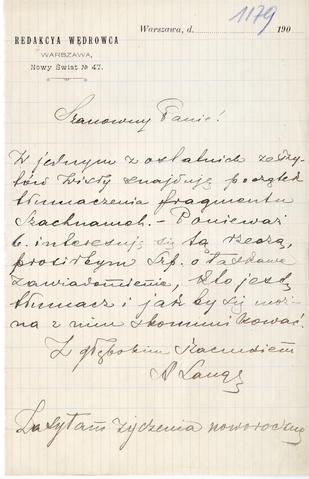 1179
Warszawa, d. 190
REDAKCYA WĘDROWCA
WARSZAWA,
Nowy Świat № 47.
Szanowny Panie!
W jednym z ostatnich zeszy-
tów Wisły znajduję początek
tłumaczenia fragmentu
Szachnameh. - Ponieważ
b. interesuję się tą rzeczą,
prosiłbym Szp. o łaskawe
zawiadomienie, kto jest
tłumacz i jak by się moż-
na z nim skommunikować.
Z głębokim szacunkiem
A Lange
Zasyłam życzenia noworoczne